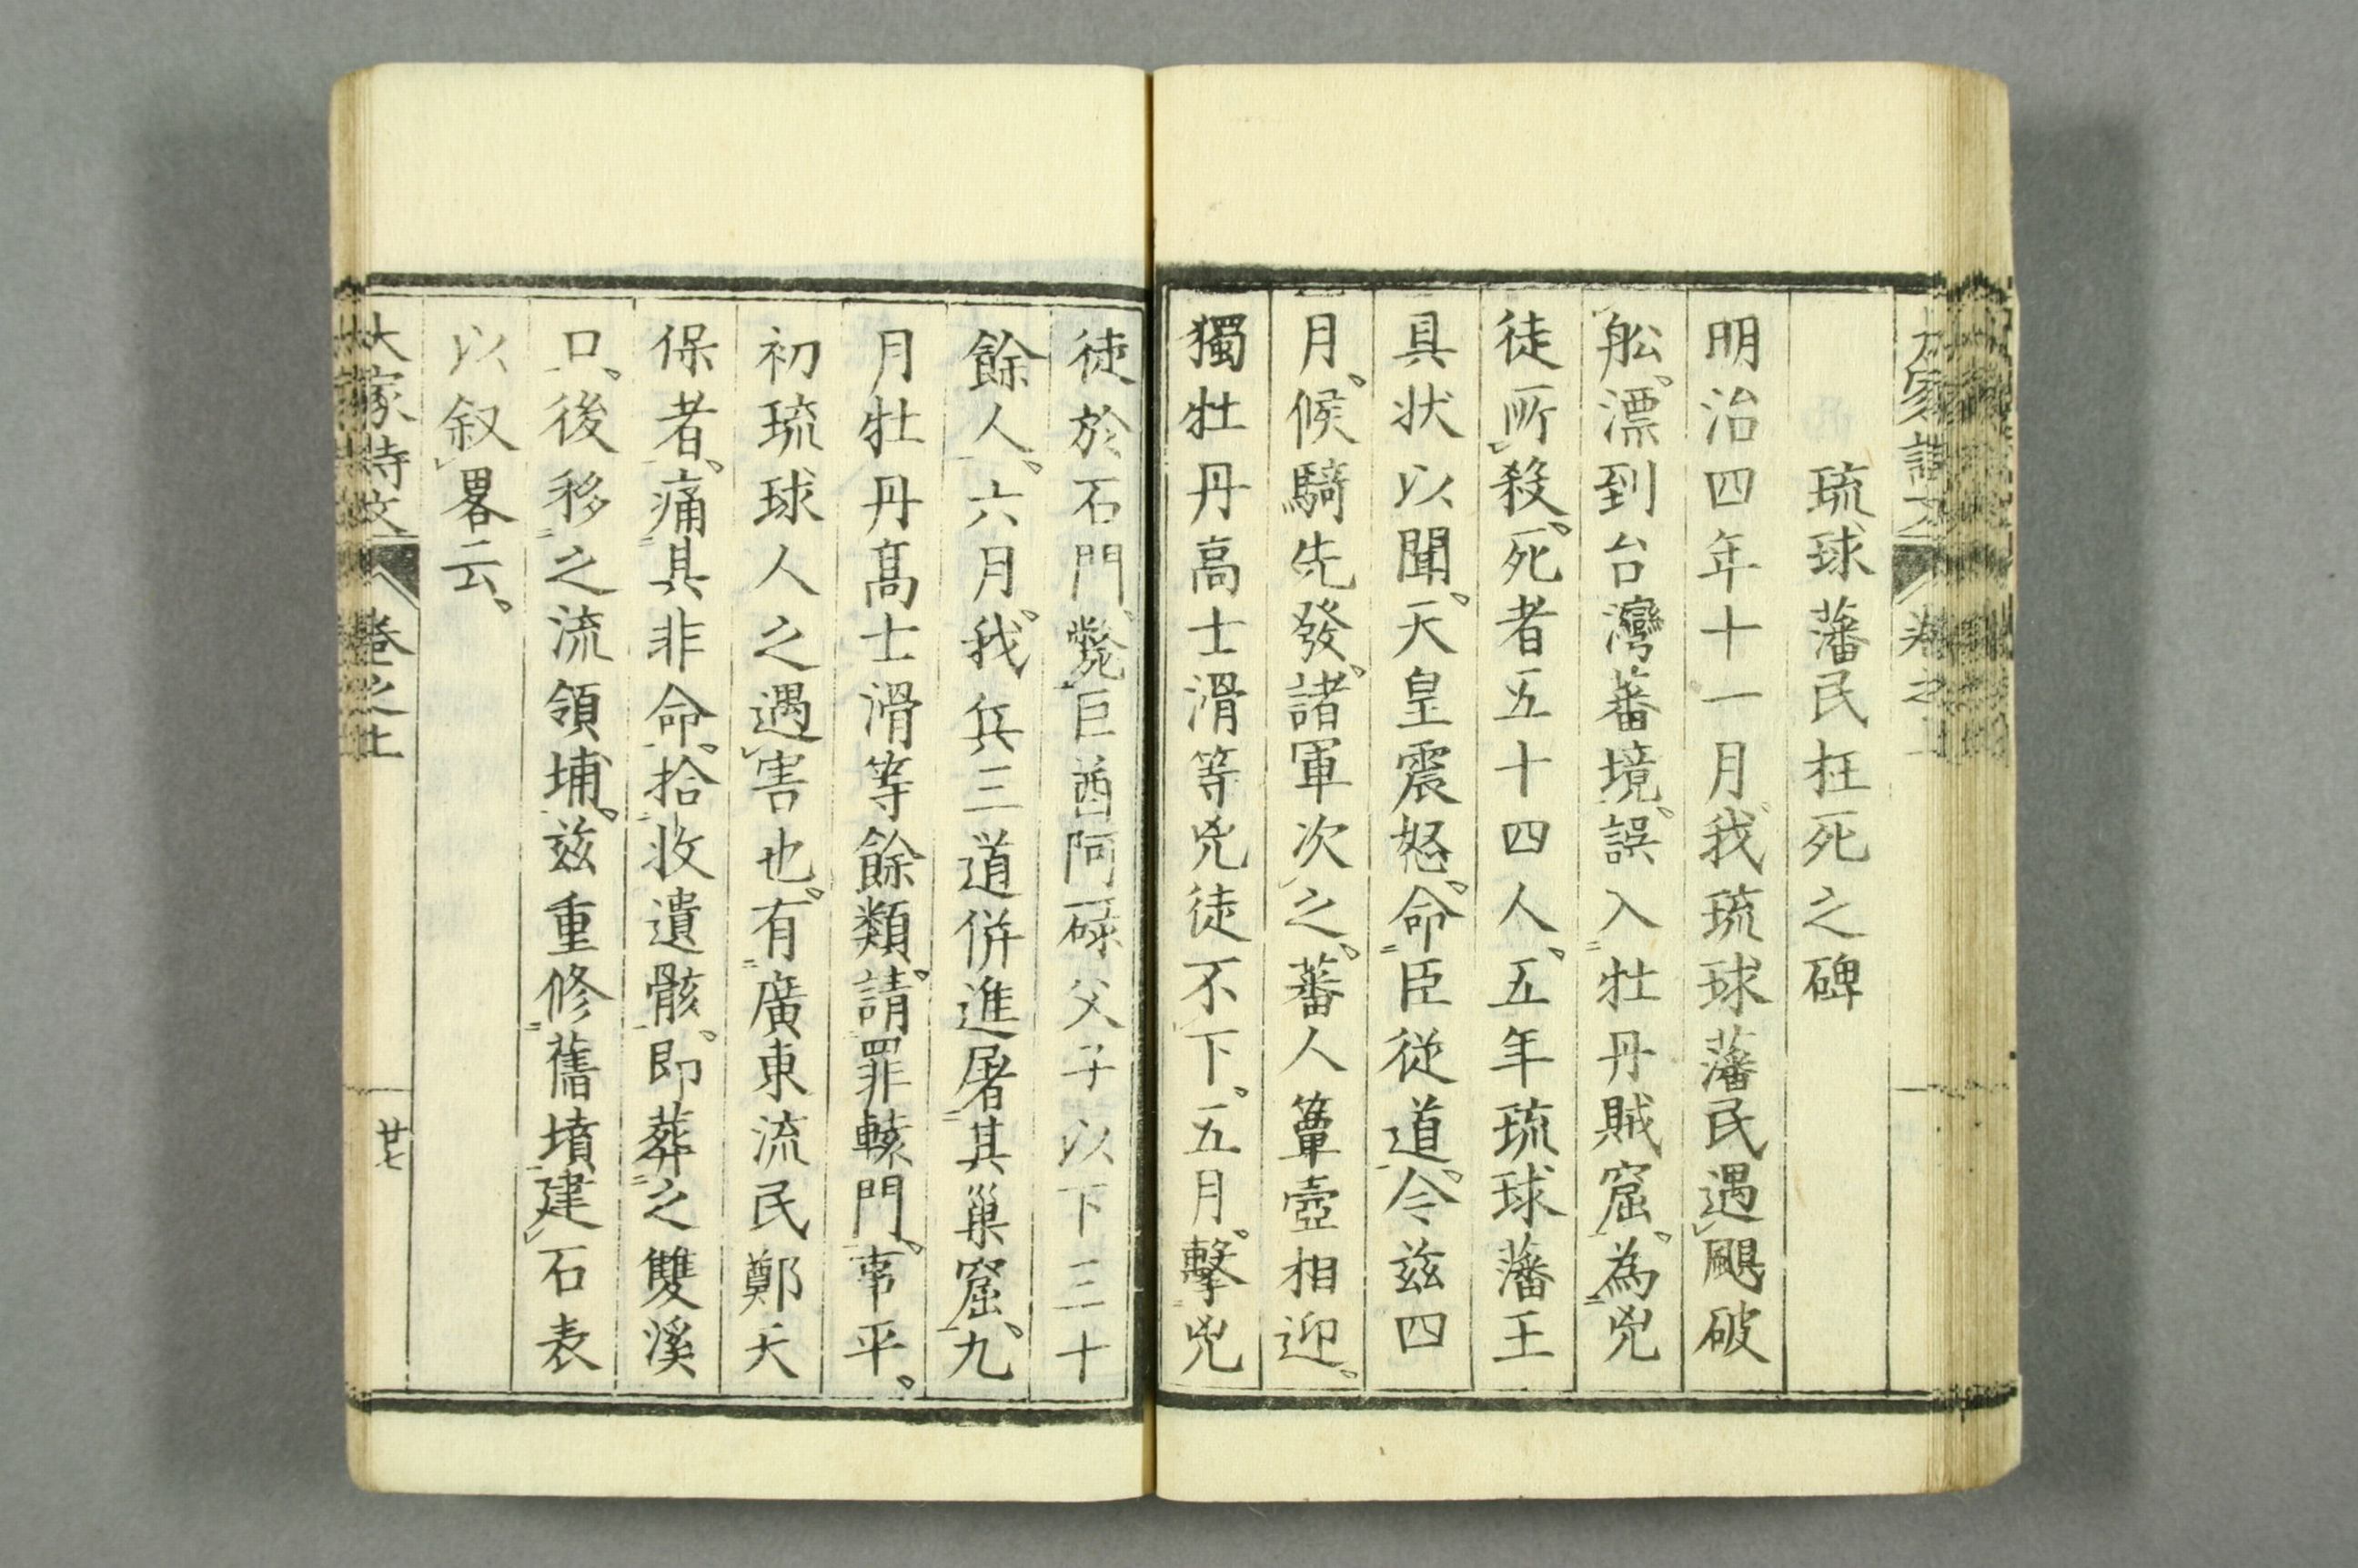 琉球藩民枉死之碑
明治四年十一月我琉球藩民遇颶破
舩漂到台灣蕃境誤入牡丹賊窟為兇
徒所殺死者五十四人五年琉球藩王
具状以聞天皇震怒命臣従道今茲四
月候騎先發諸軍次之蕃人簞壺相迎
獨牡丹高士滑等兇徒不下五月擊兇
徒於石門斃巨酋阿碌父子以下三十
餘人六月我兵三道併進屠其巢窟九
月牡丹髙士滑等餘類請罪轅門事平
初琉球人之遇害也有廣東流民鄭天
保者痛其非命拾收遺骸即葬之雙溪
口後移之流領埔茲重修舊墳建石表
以叙畧云
大家詩文
卷之上
廿七